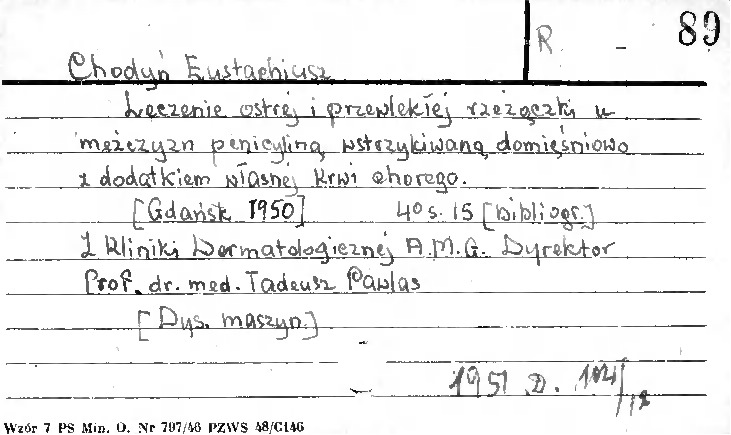 R. - 89
Chodyń Eustachiusz
Leczenie ostrej i przewlekłej rzeżączki u
mężczyzn penicyliną wstrzykiwaną domięśniowo
z dodatkiem własnej krwi chorego.
[Gdańsk 1950] 40 s. 15 [bibliogr.]
Z Kliniki Dermatologicznej A.M.G. Dyrektor
Prof. dr. med. Tadeusz Pawlas
[Dys. maszyn.]
1951 D.
Wzór 7 PS Min. O. Nr 797/46 PZWS 48/C146